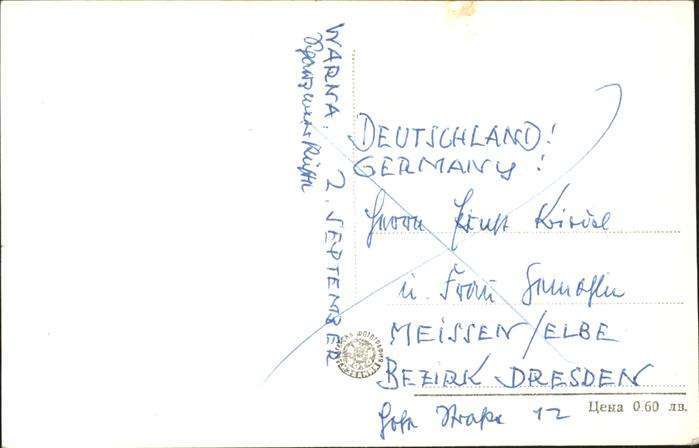 WARNA. 2. SEPTEMBER
DEUTSCHLAND!
GERMANY!
Herrn Ernst
u. Frau Gemahlin
MEISSEN/ELBE
BEZIRK DRESDEN
Straße 12
Цена 0.60 лв.